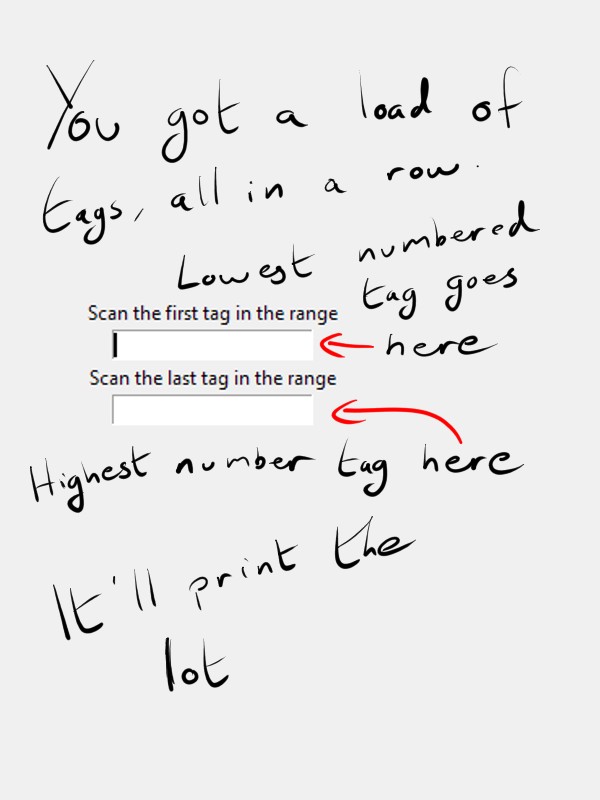 You got a load of
tags, all in a row.
Lowest numbered
tag goes
Scan the first tag in the range
here
Scan the last tag in the range
Highest number tag here
It'll print the
lot